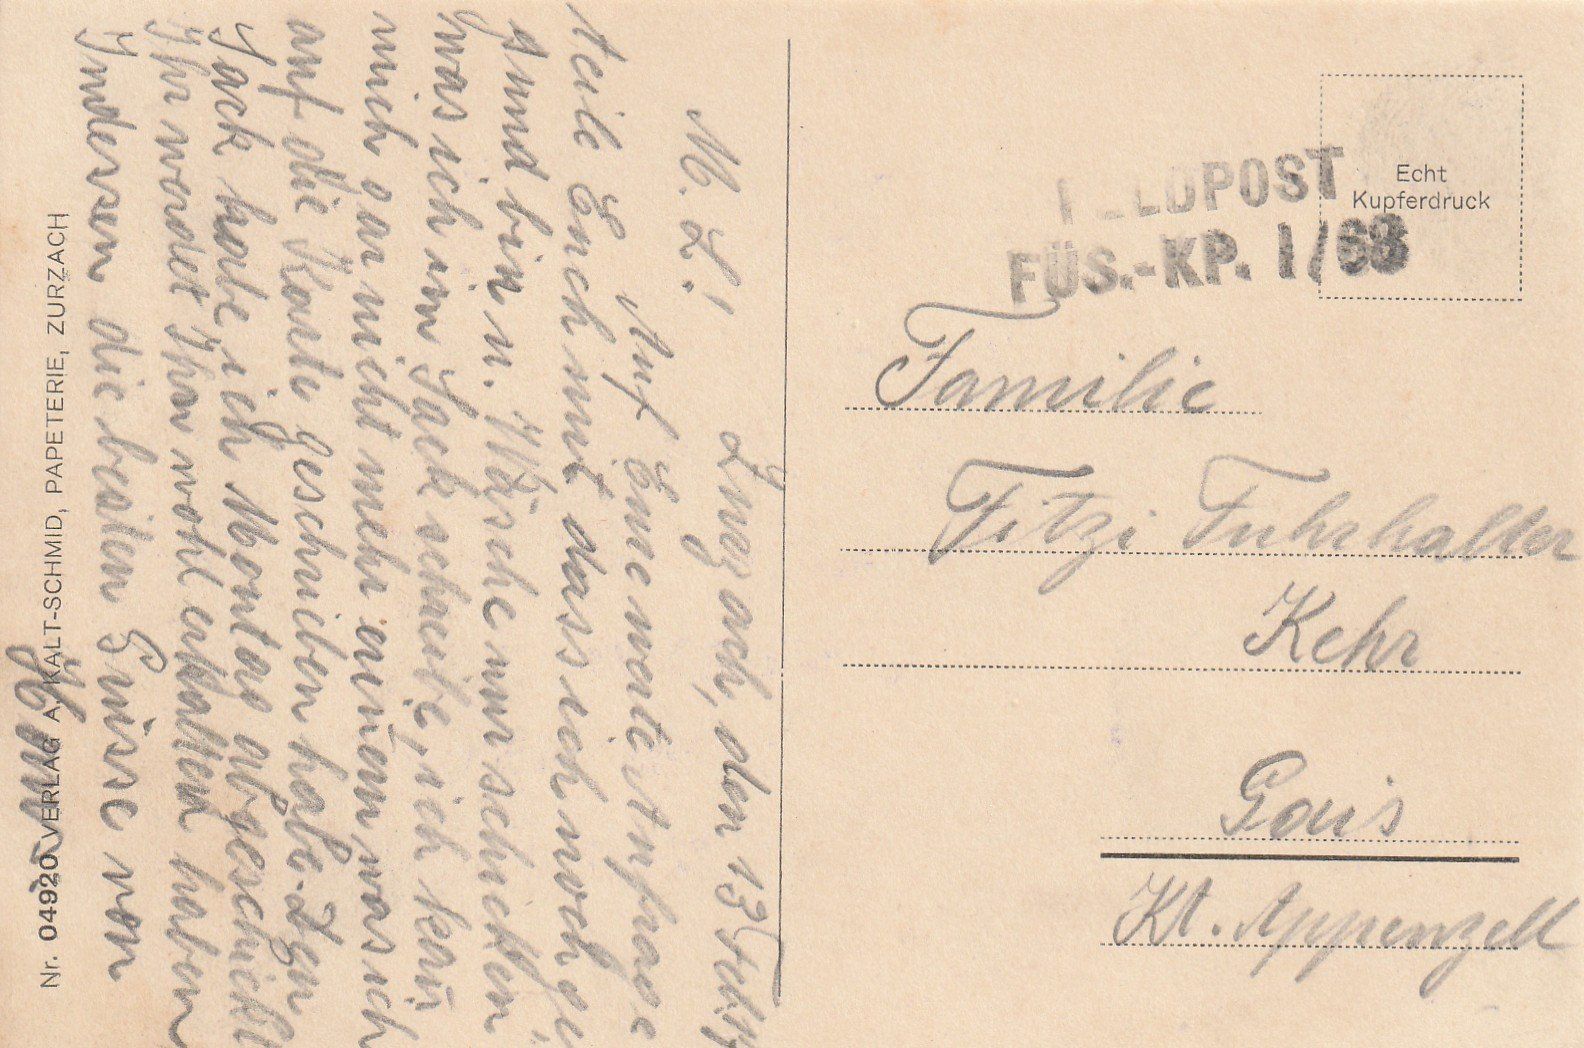 Zurzach, den 13 Febr
M. L.!
Auf Eure werte Anfrage
teile Euch mit dass ich noch ge
sund bin u. Wäsche nur schicken
was ich im Sack schreibe, ich kann
mich gar nicht mehr erinern was ich
auf die Karte geschrieben habe.
Sack habe ich Montag abgeschickt
Ihr werdet Ihn wohl erhalten haben
Indessen die besten Grüsse von
Nr. 04920 VERLAG A. KALT-SCHMID, PAPETERIE, ZURZACH
FELDPOST
FÜS.-KP. I/68
Echt
Kupferdruck
Familie
Fitzi Fuhrhalter
Kehr
Gais
Kt. Appenzell